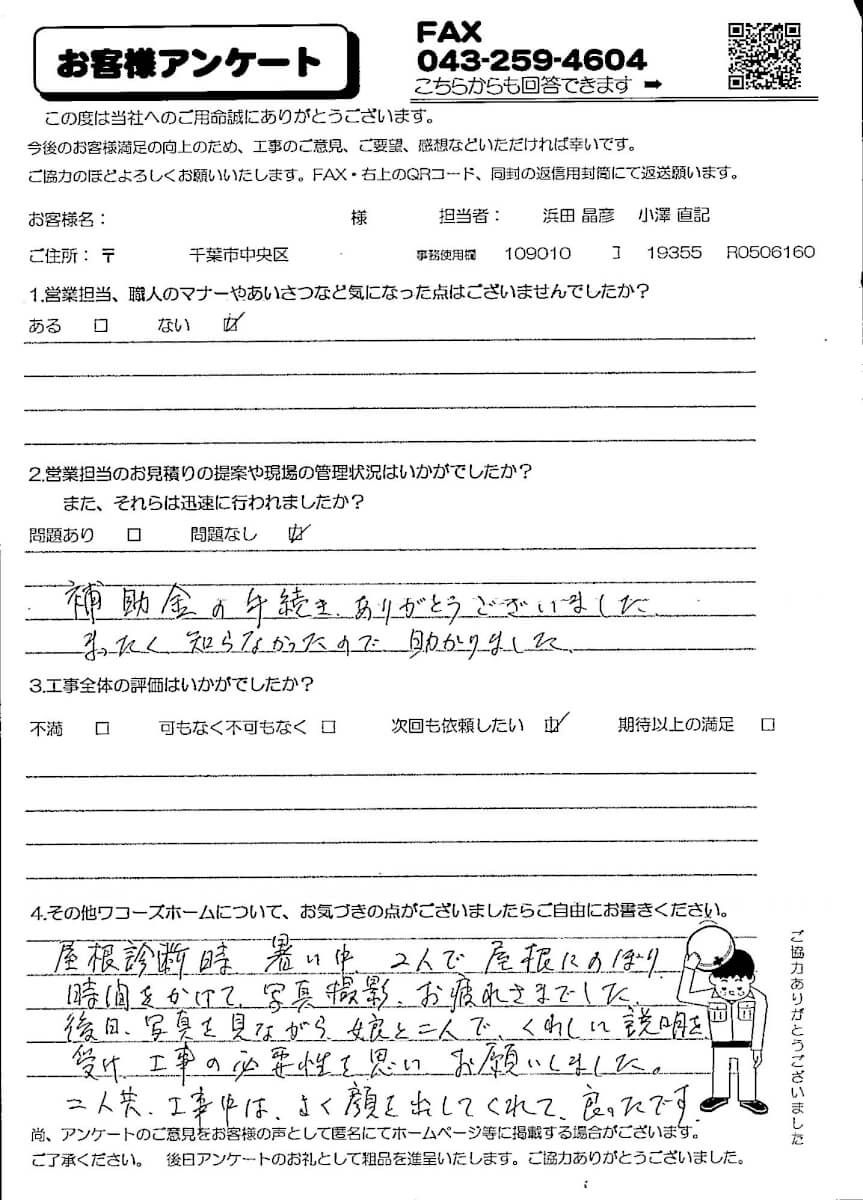 お客様アンケート
FAX
043-259-4604
こちらからも回答できます ➡
この度は当社へのご用命誠にありがとうございます。
今後のお客様満足の向上のため、工事のご意見、ご要望、感想などいただければ幸いです。
ご協力のほどよろしくお願いいたします。FAX・右上のQRコード、同封の返信用封筒にて返送願います。
お客様名： 様 担当者： 浜田 晶彦 小澤 直記
ご住所：〒 千葉市中央区 事務使用欄 109010 コ 19355 R0506160
1.営業担当、職人のマナーやあいさつなど気になった点はございませんでしたか？
ある □ ない ☑
2.営業担当のお見積りの提案や現場の管理状況はいかがでしたか？
また、それらは迅速に行われましたか？
問題あり □ 問題なし ☑
補助金の手続き、ありがとうございました。
まったく知らなかったので助かりました。
3.工事全体の評価はいかがでしたか？
不満 □ 可もなく不可もなく □ 次回も依頼したい ☑ 期待以上の満足 □
4.その他ワコーズホームについて、お気づきの点がございましたらご自由にお書きください。
屋根診断時 暑い中、2人で屋根にのぼり
時間をかけて、写真撮影、お疲れさまでした。
後日、写真を見ながら、娘と二人で、くわしい説明を
受け、工事の必要性を思い、お願いしました。
二人共、工事中は、よく顔を出してくれて、良ったです。
ご協力ありがとうございました
尚、アンケートのご意見をお客様の声として匿名にてホームページ等に掲載する場合がございます。
ご了承ください。 後日アンケートのお礼として粗品を進呈いたします。ご協力ありがとうございました。